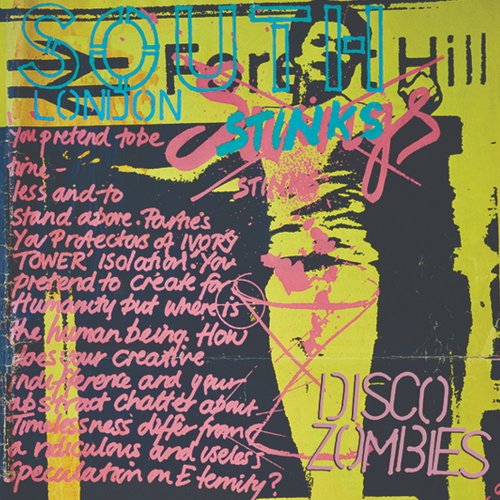 SOUTH
Hill
LONDON
STINKS
You pretend to be
time -
less and to
stand above.
You Protectors of IVORY
TOWER' isolation. You
pretend to create for
Humanity but where is
the human being. How
does your creative
indifference and your
abstract chatter about
Timelessness differ from
a ridiculous and useless
speculation on Eternity?
DISCO
ZOMBIES